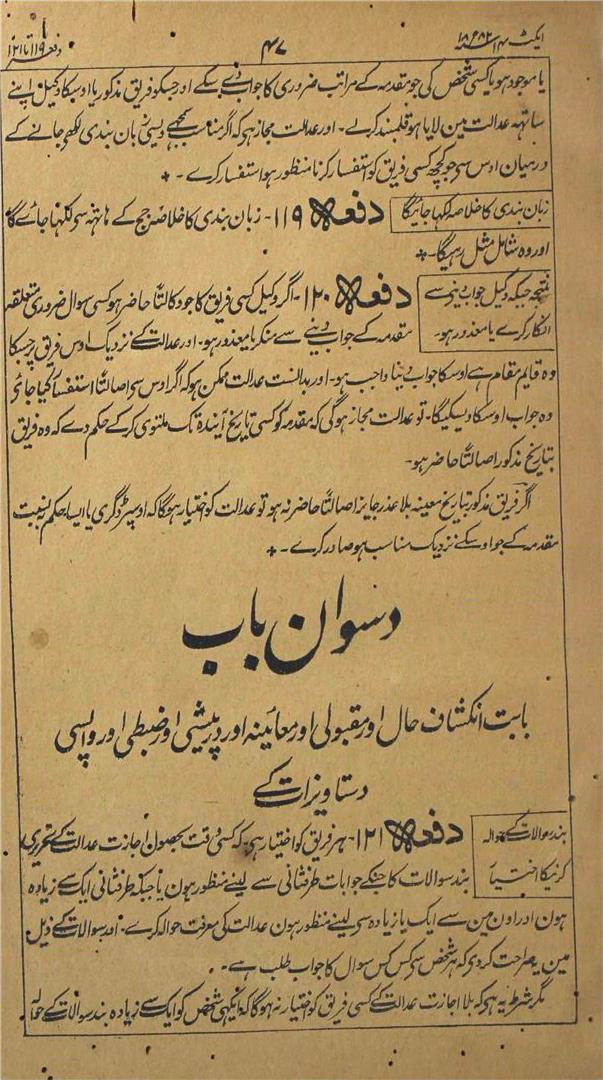 ایکٹ ۱۴ سنہ ۱۸۸۲ء ۴۷ دفعہ ۱۱۹ تا ۱۲۱
یا موجود ہو یا کسی شخص کی جو مقدمہ کے مراتب ضروری کا جواب دے سکے اور جسکو فریق مذکور یا اوسکا وکیل اپنے
ساتھہ عدالت مین لایا ہو قلمبند کرلے ۔ اور عدالت مجاز ہی کہ اگر مناسب سمجھے ویسی زبان بندی لکھی جانے کے
درمیان اوس سی جو کچھ کسی فریق کو استفسار کرنا منظور ہو استفسار کرے ۔ *
زبان بندی کا خلاصہ لکھا جائیگا
دفعہ ۱۱۹ ۔ زبان بندی کا خلاصہ جج کے ہاتھہ سی لکھا جائے گا
اور وہ شامل مثل رہیگا ۔ *
نتیجہ جبکہ وکیل جواب دینی سے
انکار کرے یا معذور ہو ۔
دفعہ ۱۲۰ ۔ اگر وکیل کسی فریق کا جو وکالتاً حاضر ہو کسی سوال ضروری متعلقہ
مقدمہ کے جواب دینے سے منکر یا معذور ہو ۔ اور عدالت کے نزدیک اوس فریق پر جسکا
وہ قایم مقام ہے اوسکا جواب دینا واجب ہو ۔ اور بدانست عدالت ممکن ہو کہ اگر اوس سی اصالتاً استفسار کیا جائے
وہ جواب اوسکا دیسکیگا ۔ تو عدالت مجاز ہوگی کہ مقدمہ کو کسی تاریخ آیندہ تک ملتوی کر کے حکم دے کہ وہ فریق
بتاریخ مذکور اصالتاً حاضر ہو ۔
اگر فریق مذکور بتاریخ معینہ بلا عذر جایز اصالتاً حاضر نہ ہو تو عدالت کو اختیار ہوگا کہ اوسپر ڈگری یا ایسا حکم بنسبت
مقدمہ کے جو اوسکے نزدیک مناسب ہو صادر کرے ۔ *
دسوان باب
بابت انکشاف حال اور مقبولی اور معائینہ اور درپیشی اور ضبطی اور واپسی
دستاویزات کے
بند سوالات کے حوالہ
کرنیکا اختیار
دفعہ ۱۲۱ ۔ ہر فریق کو اختیار ہی کہ کسی وقت بحصول اجازت عدالت کے تحریری
بند سوالات کا جنکے جوابات طرفثانی سے لینے منظور ہون یا جبکہ طرفثانی ایک سے زیادہ
ہون اور اون مین سے ایک یا زیادہ سی لینے منظور ہون عدالت کی معرفت حوالہ کرے ۔ اور سوالات کے ذیل
مین یہ صراحت کر دی کہ ہر شخص سی کس کس سوال کا جواب طلب ہے ۔
مگر شرط یہ ہی کہ بلا اجازت عدالت کے کسی فریق کو اختیار نہ ہوگا کہ ایکہی شخص کو ایک سے زیادہ بند سوالات کے حوالہ